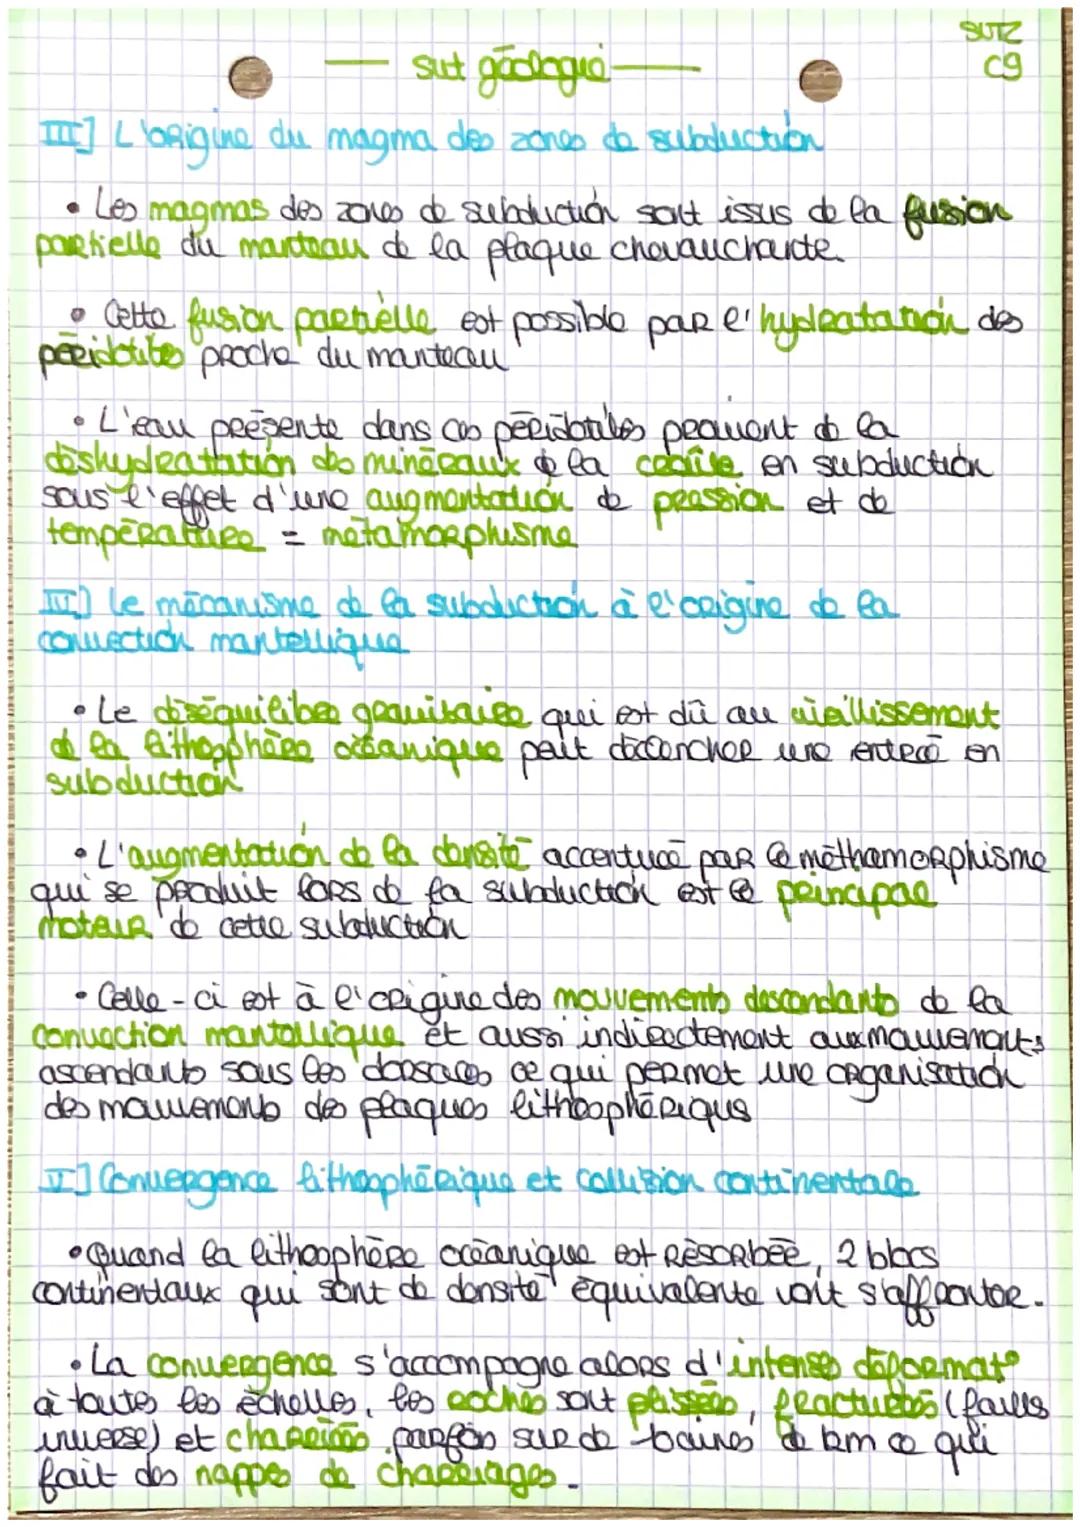 SVT2
C9
svt géologie
III] L'origine du magma des zones de subduction
• Les magmas des zones de subduction sont issus de la fusion
partielle du manteau de la plaque chevauchante.
• Cette fusion partielle est possible par l'hydratation des
péridotites proche du manteau
• L'eau présente dans ces péridotites provient de la
déshydratation des minéraux de la croûte en subduction
sous l'effet d'une augmentation de pression et de
température = métamorphisme
III] Le mécanisme de la subduction à l'origine de la
convection mantellique
• Le déséquilibre gravitaire qui est dû au vieillissement
de la lithosphère océanique peut déclencher une entrée en
subduction
• L'augmentation de la densité accentuée par le méthamorphisme
qui se produit lors de la subduction est le principal
moteur de cette subduction
• Celle-ci est à l'origine des mouvements descendants de la
convection mantellique et aussi indirectement aux mouvements
ascendants sous les dorsales ce qui permet une organisation
des mouvements des plaques lithosphériques
V] Convergence lithosphérique et collision continentale
• Quand la lithosphère océanique est résorbée, 2 blocs
continentaux qui sont de densité équivalente vont s'affronter.
• La convergence s'accompagne alors d'intenses déformat°
à toutes les échelles, les roches sont plissées, fracturées (failles
inverse) et charriées parfois sur de baines de km ce qui
fait des nappes de charriages.